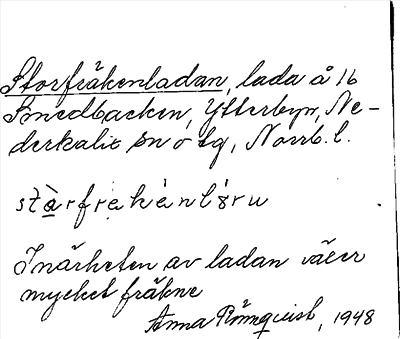 Storfräkenladan, lada å 16
Smedbacken, Ytterbyn, Ne-
derkalix sn o tg, Norrb. l.
stàrfrekènlôru
I närheten av ladan växer
mycket fräkne
Anna Rönnquist, 1948